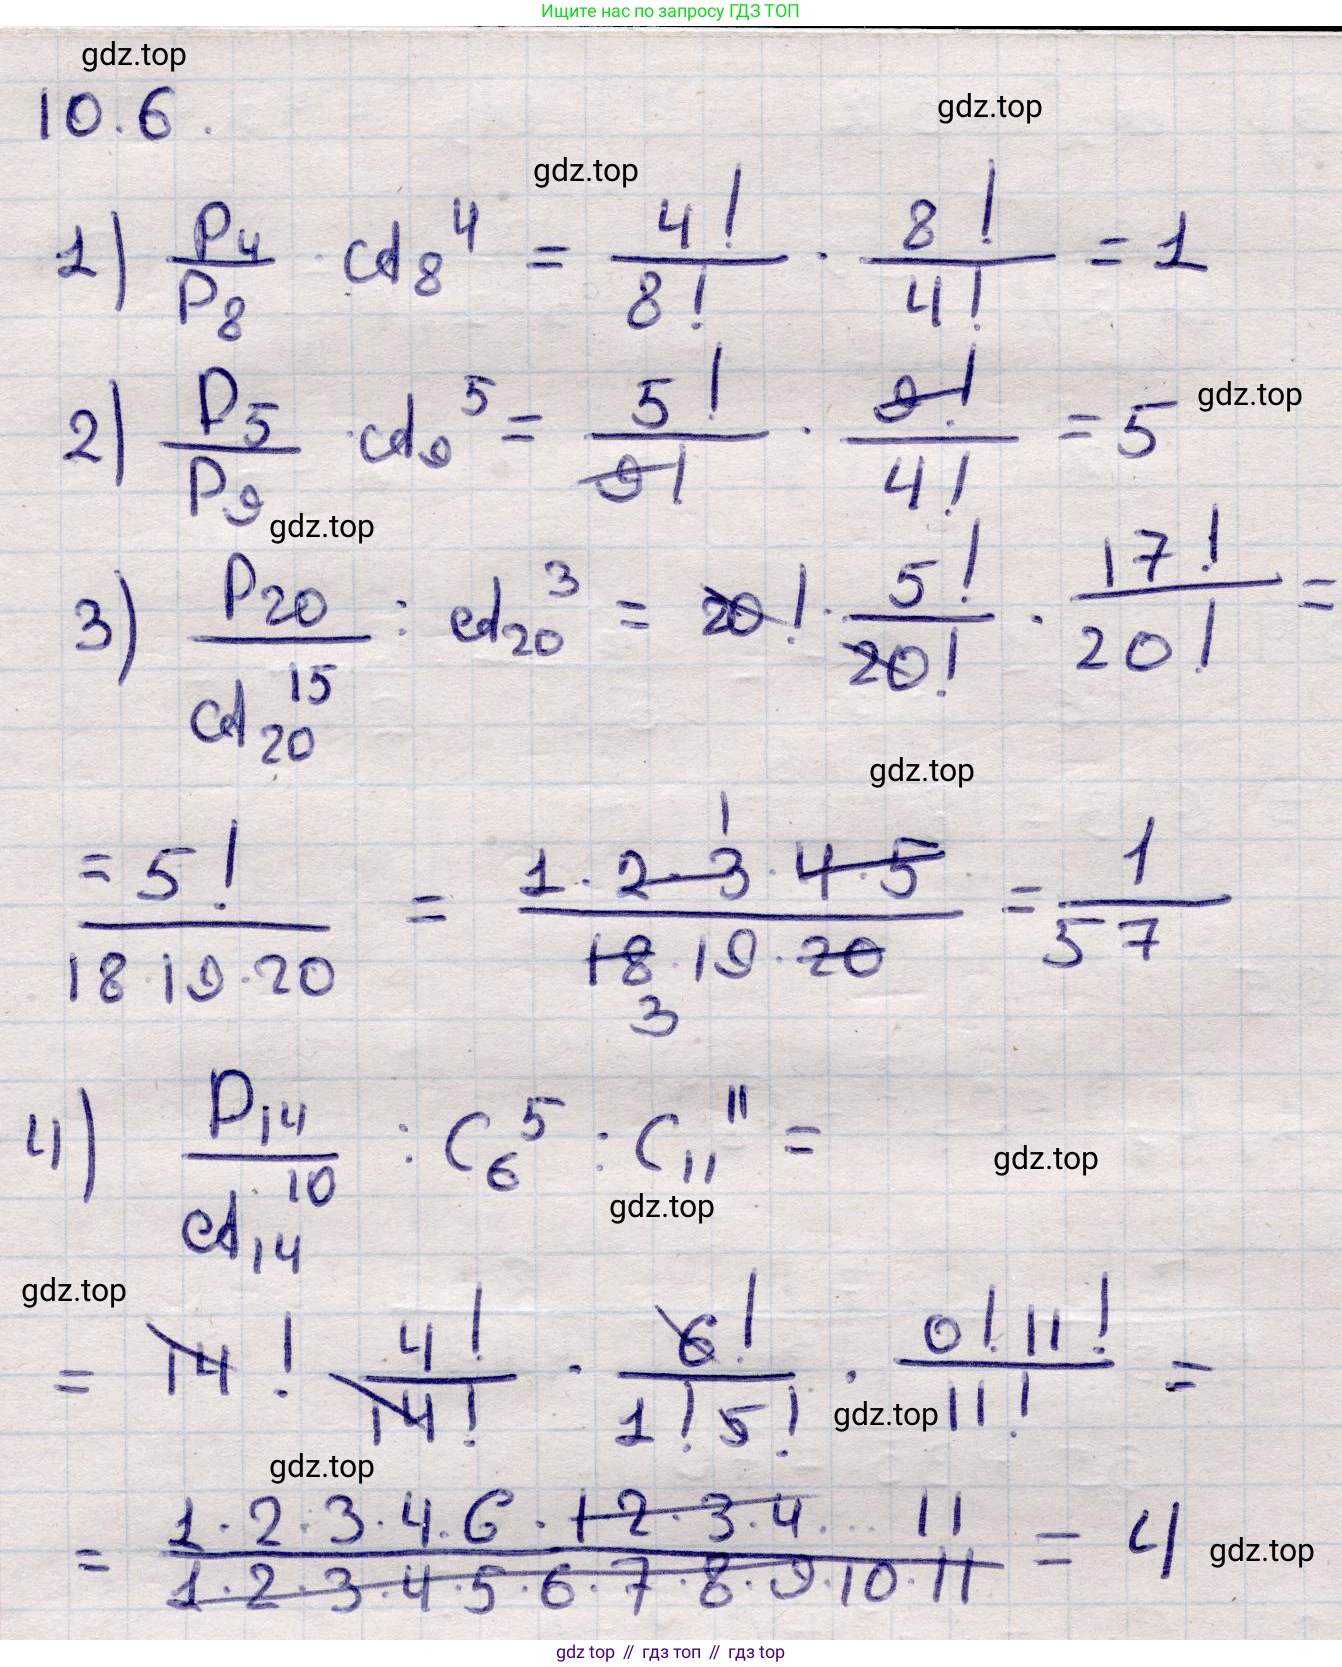 Ищите нас по запросу ГДЗ ТОП
gdz.top
10.6.
gdz.top
gdz.top
1) P₄/P₈ · A₈⁴ = 4!/8! · 8!/4! = 1
2) P₅/P₉ · A₉⁵ = 5!/9! · 9!/4! = 5
gdz.top
gdz.top
3) P₂₀/A₂₀¹⁵ : A₂₀³ = 20! · 5!/20! · 17!/20! =
gdz.top
= 5!/18·19·20 = 1·2·3·4·5/18·19·20 = 1/57
1
3
4) P₁₄/A₁₄¹⁰ : C₆⁵ : C₁₁¹¹ =
gdz.top
gdz.top
gdz.top
= 14! 4!/14! · 6!/1!5! · 0!11!/11! =
gdz.top
gdz.top
= 1·2·3·4·6·1 2·3·4... 11/1·2·3·4·5·6·7·8·9·10·11 = 4
gdz.top
gdz top // гдз топ // гдз top